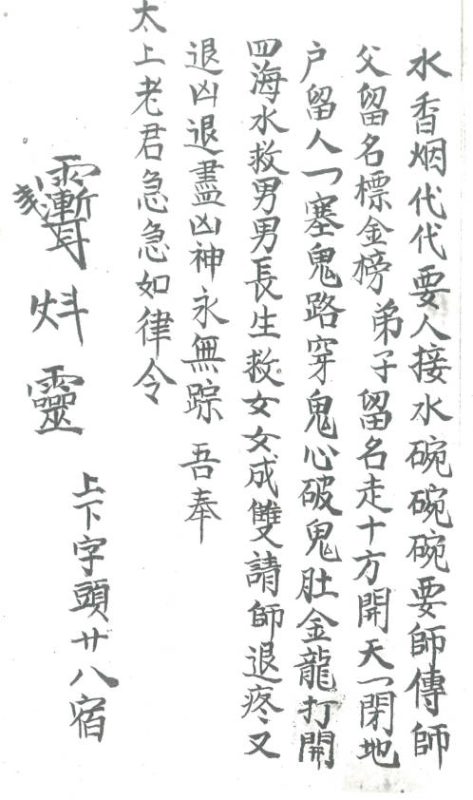 水香烟代代要人接水碗碗碗要師傳師
父留名標金榜弟子留名走十方開天一閉地
户留人一塞鬼路穿鬼心破鬼肚金龍打開
四海水救男男長生救女女成雙請師退疼々又
退凶退盡凶神永無踪吾奉
太上老君急急如律令
靈
上下字頭廿八宿